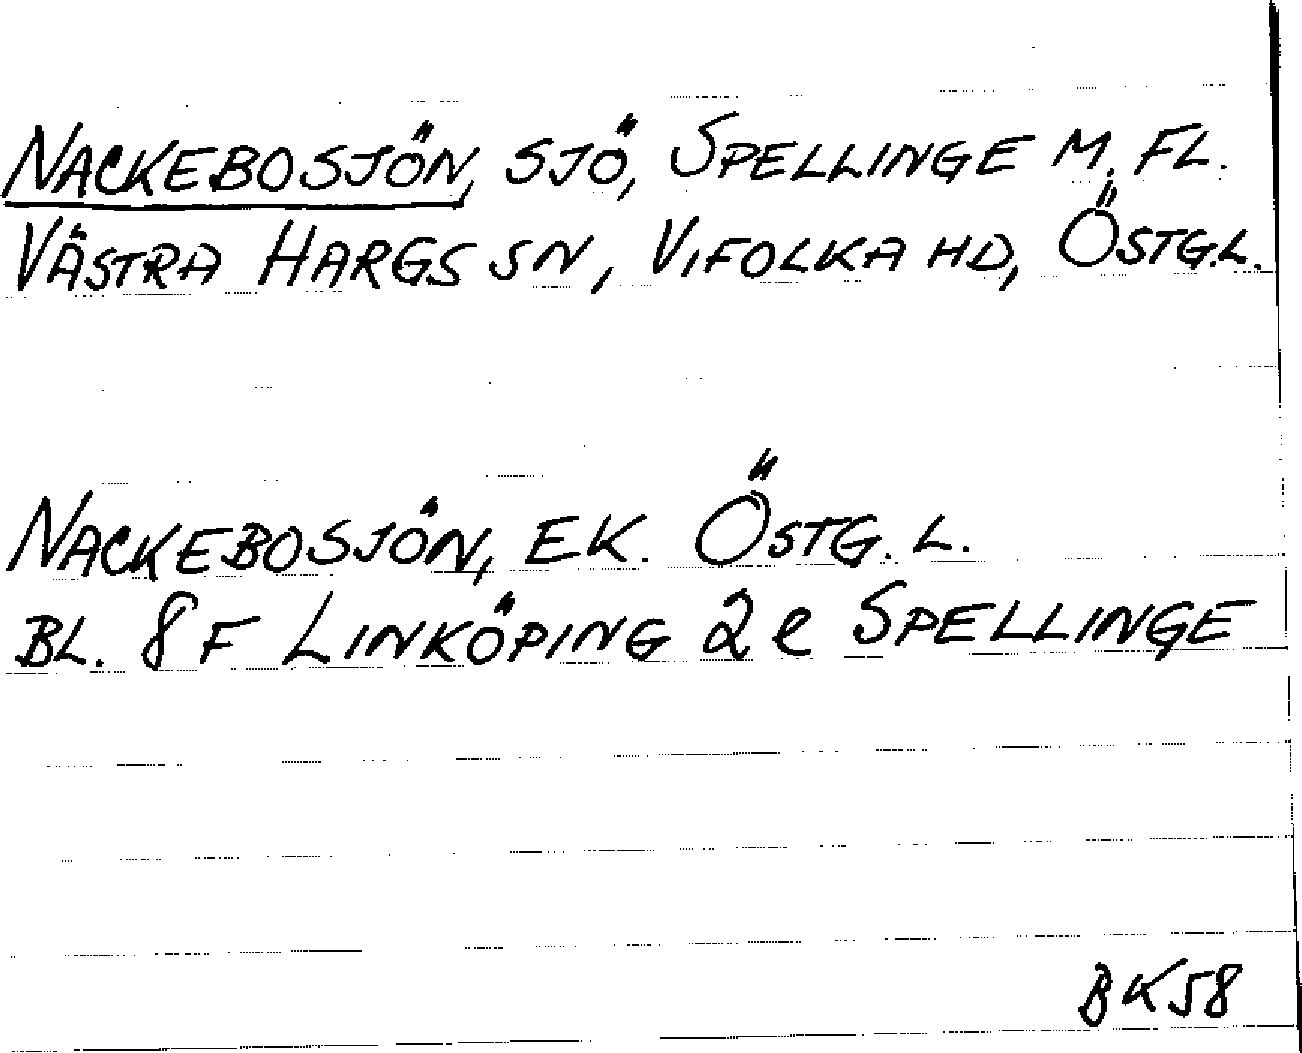 NACKEBOSJÖN, SJÖ, SPELLINGE M. FL.
VÄSTRA HARGS SN, VIFOLKA HD, ÖSTG.L.
NACKEBOSJÖN, EK. ÖSTG. L.
BL. 8 F LINKÖPING 2 e SPELLINGE
BK58